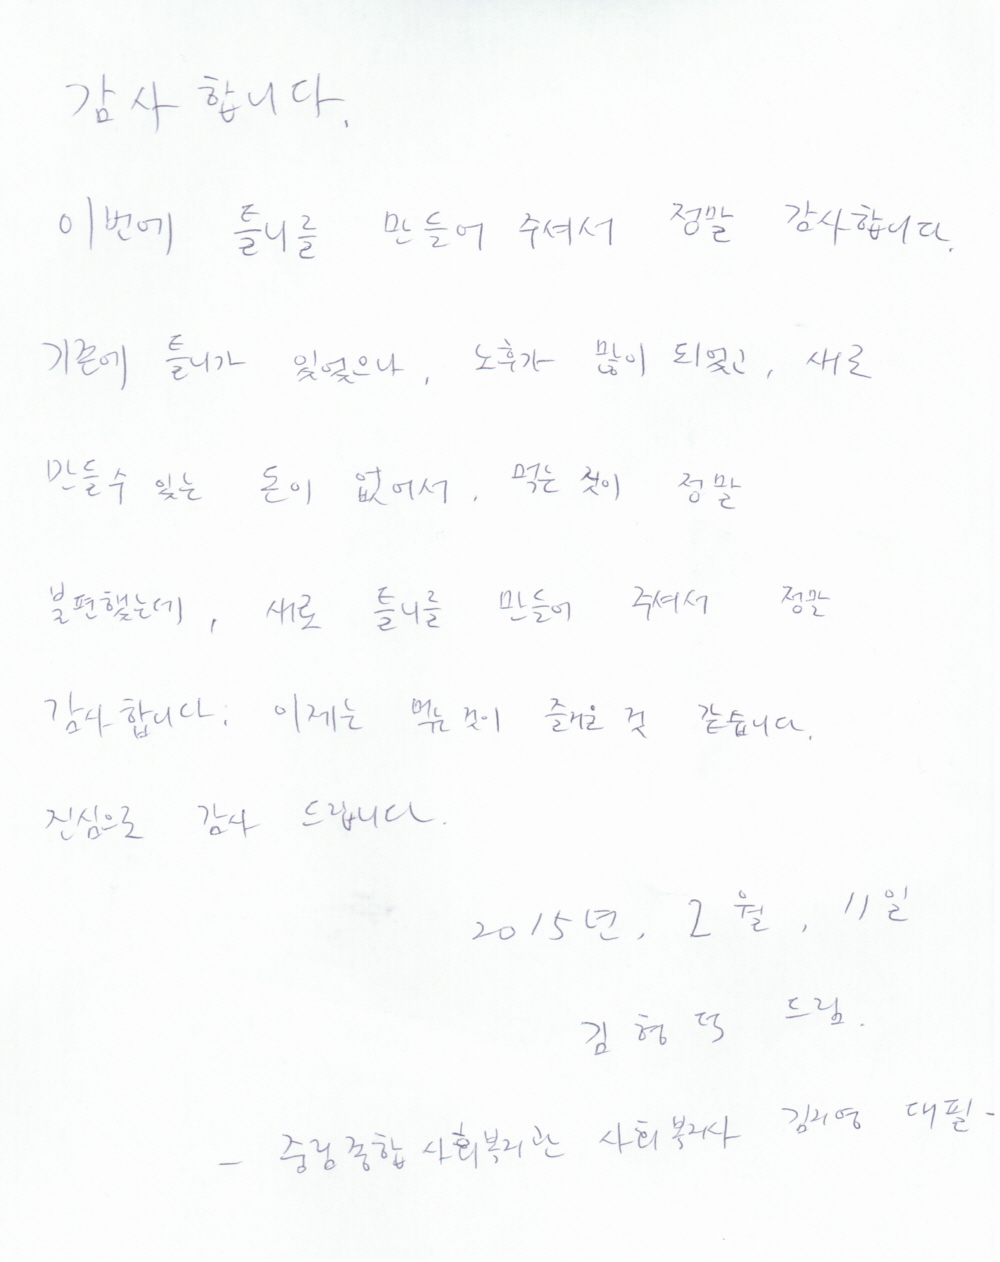 감사합니다.
이번에 틀니를 만들어 주셔서 정말 감사합니다.
기존에 틀니가 있었으나, 노후가 많이 되었고, 새로
만들수 있는 돈이 없어서, 먹는 것이 정말
불편했는데, 새로 틀니를 만들어 주셔서 정말
감사합니다. 이제는 먹는 것이 즐거운 것 같습니다.
진심으로 감사 드립니다.
2015년, 2월, 11일
김형덕 드림.
- 중랑종합사회복지관 사회복지사 김지영 대필 -